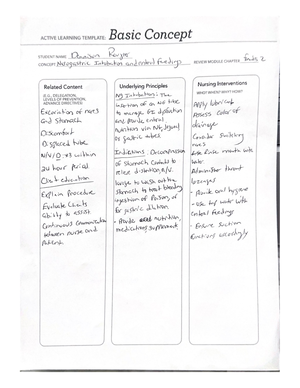 ACTIVE LEARNING TEMPLATE: Basic Concept
STUDENT NAME
CONCEPT Nasogastric Intubation and enteral feedings REVIEW MODULE CHAPTER
Related Content
(E.G., DELEGATION,
LEVELS OF PREVENTION,
ADVANCE DIRECTIVES)
Excoriation of nares
and Stomach
Discomfort
Displaced tube
N/V/D within
24 hour period
Client education
Explain Procedure
Evaluate Clients
ability to assist
Continuous Communication
between nurse and
Patient
Underlying Principles
NG Intubation: The
insertion of an NG tube
to manage GI dysfunction
and Provide enteral
nutrition via NG, jejunal
or gastric tubes
Indications: Decompression
of Stomach Contents to
relieve distention, N/V.
Lavage to wash out the
Stomach to treat bleeding
ingestion of Poison, or
for gastric dilation
- Provide nutrition,
medications, supplements
Nursing Interventions
WHO? WHEN? WHY? HOW?
Apply lubricant
Assess Color of
drainage
Consider Switching
nares
water
Administer throat
lozenges
- Provide oral hygiene
- Use tap water with
enteral feedings
- Ensure suction
functions accordingly